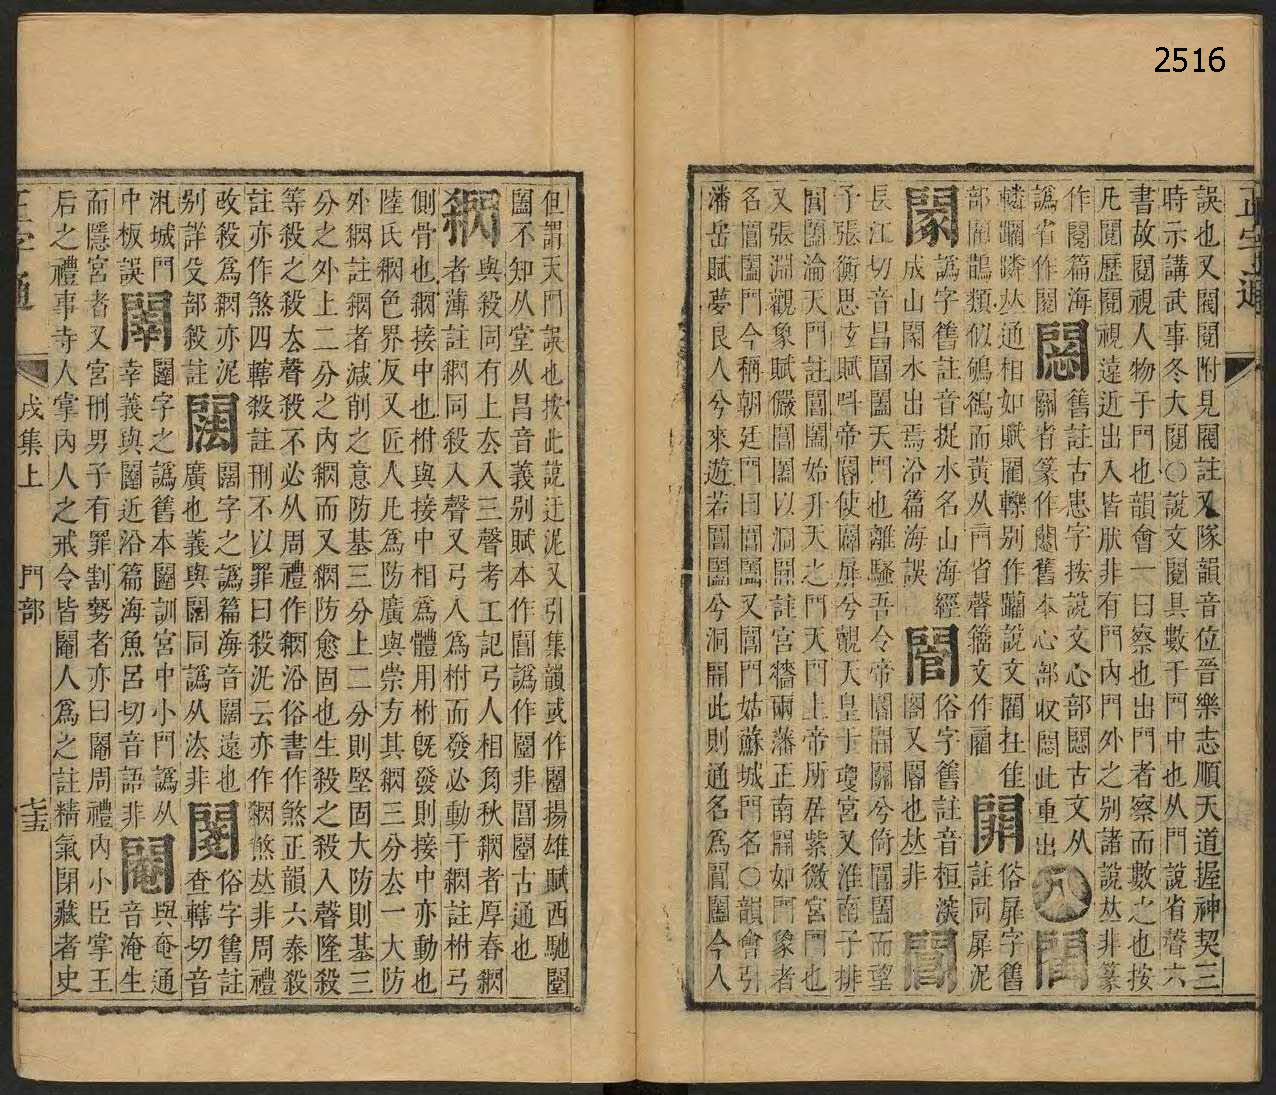 2516
正字通
誤也又閥閱附見閥註又隊韻音位晉樂志順天道握神契三
時示講武事冬大閱○說文閱具數于門中也从門說省聲六
書故閱視人物于門也韻會一曰察也出門者察而數之也按
凡閱歷閱視遠近出入皆肰非有門內門外之别諸說𠀤非篆
作閱篇海
譌省作閱
舊註古患字按說文心部古文从
關省篆作舊本心部收此重出
八
閵
轔躪蹸𠀤通相如賦閵轢别作躪說文閵在隹
部閵鵲類似鴝鵒而黃从門省聲籀文作
俗屝字舊
註同屝泥
譌字舊註音捉水名山海經
成山水出焉沿篇海誤
俗字舊註音桓漢
閣又閽也𠀤非
閶
長江切音昌閶闔天門也離騷吾令帝閽開關兮倚閶闔而望
予張衡思玄賦叫帝閽使闢屝兮覿天皇于瓊宮又淮南子排
閶闔淪天門註閶闔始升天之門天門上帝所居紫微宮門也
又張淵觀象賦儼閶闔以洞開註宮牆兩藩正南開如門象者
名閶闔門今稱朝廷門曰閶闔又閶門姑蘇城門名○韻會引
潘岳賦夢良人兮來遊若閶闔兮洞開此則通名爲閶闔今人
但謂天門誤也按此說迂泥又引集韻或作闛揚雄賦西馳闛
闔不知从堂从昌音義别賦本作閶譌作闛非閶闛古通也
與殺同有上去入三聲考工記弓人相角秋者厚春
者薄註同殺入聲又弓入爲柎而發必動于註柎弓
側骨也接中也柎與接中相爲體用柎旣發則接中亦動也
陸氏色界反又匠人凡爲防廣與崇方其三分去一大防
外註者減削之意防基三分上二分則堅固大防則基三
分之外上二分之內而又防愈固也生殺之殺入聲隆殺
等殺之殺去聲殺不必从周禮作沿俗書作煞正韻六泰殺
註亦作煞四轄殺註刑不以罪曰殺泛云亦作煞𠀤非周禮
改殺爲亦泥
别詳殳部殺註
闊字之譌篇海音闊遠也
廣也義與闊同譌从泫非
俗字舊註
查轄切音
汎城門
中板誤
闈字之譌舊本闈訓宮中小門譌从
幸義與闈近沿篇海魚呂切音語非
閹
與奄通
音淹生
而隱宮者又宮刑男子有罪割勢者亦曰閹周禮內小臣掌王
后之禮事寺人掌內人之戒令皆閹人爲之註精氣閉藏者史
正字通
戌集上
門部
七五